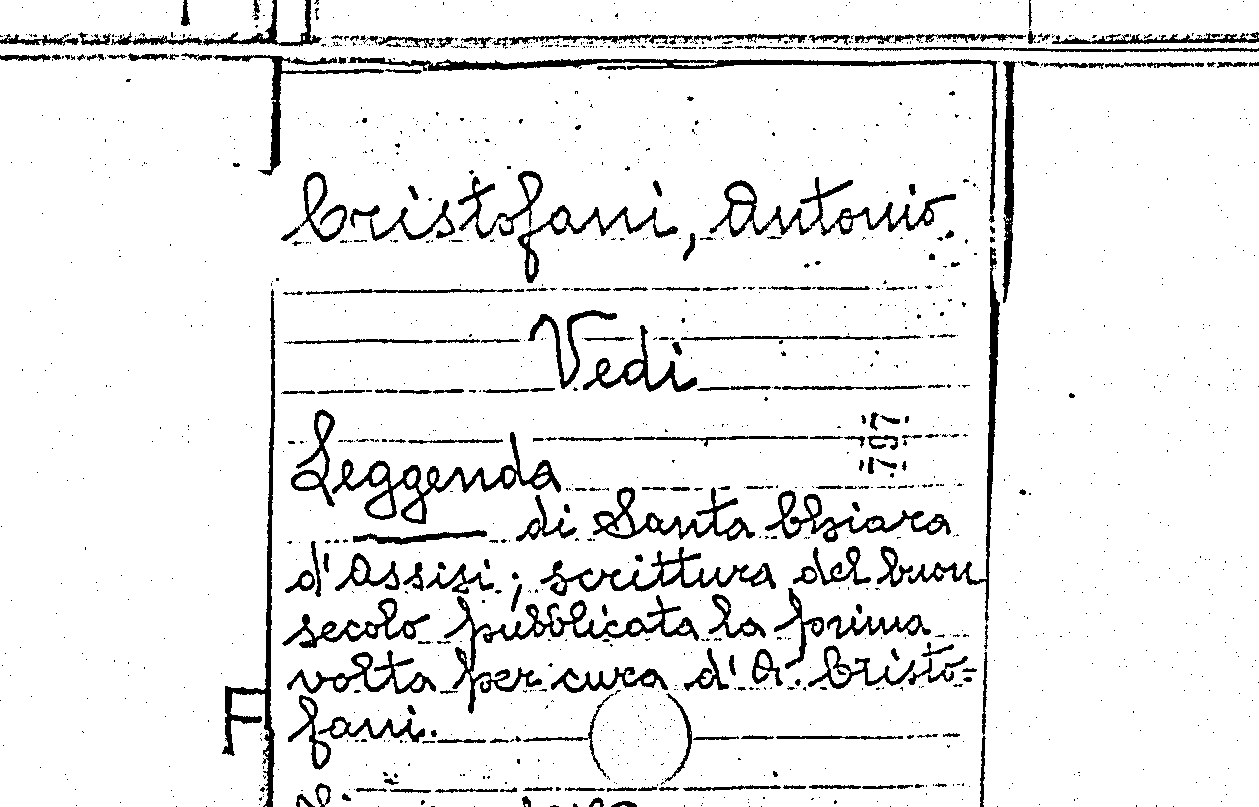 Cristofani, Antonio
Vedi
Leggenda
797
di Santa Chiara
d'Assisi; scrittura del buon
secolo pubblicata la prima
volta per cura d'A. Cristo-
fani.
F